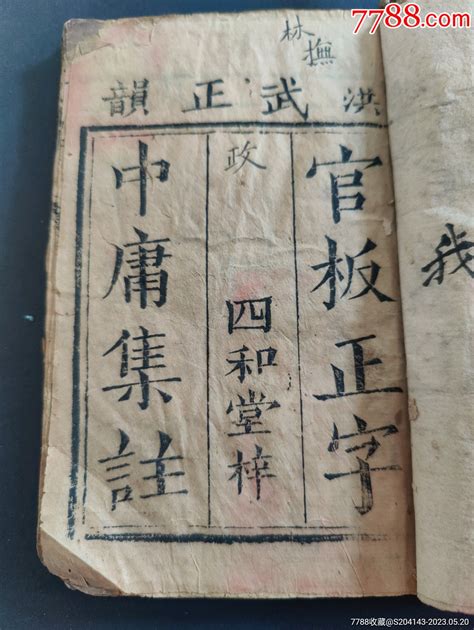 7788.com
林撫
洪武正韻
官板正字
政
四和堂梓
中庸集註
我
7788收藏@S204143-2023.05.20